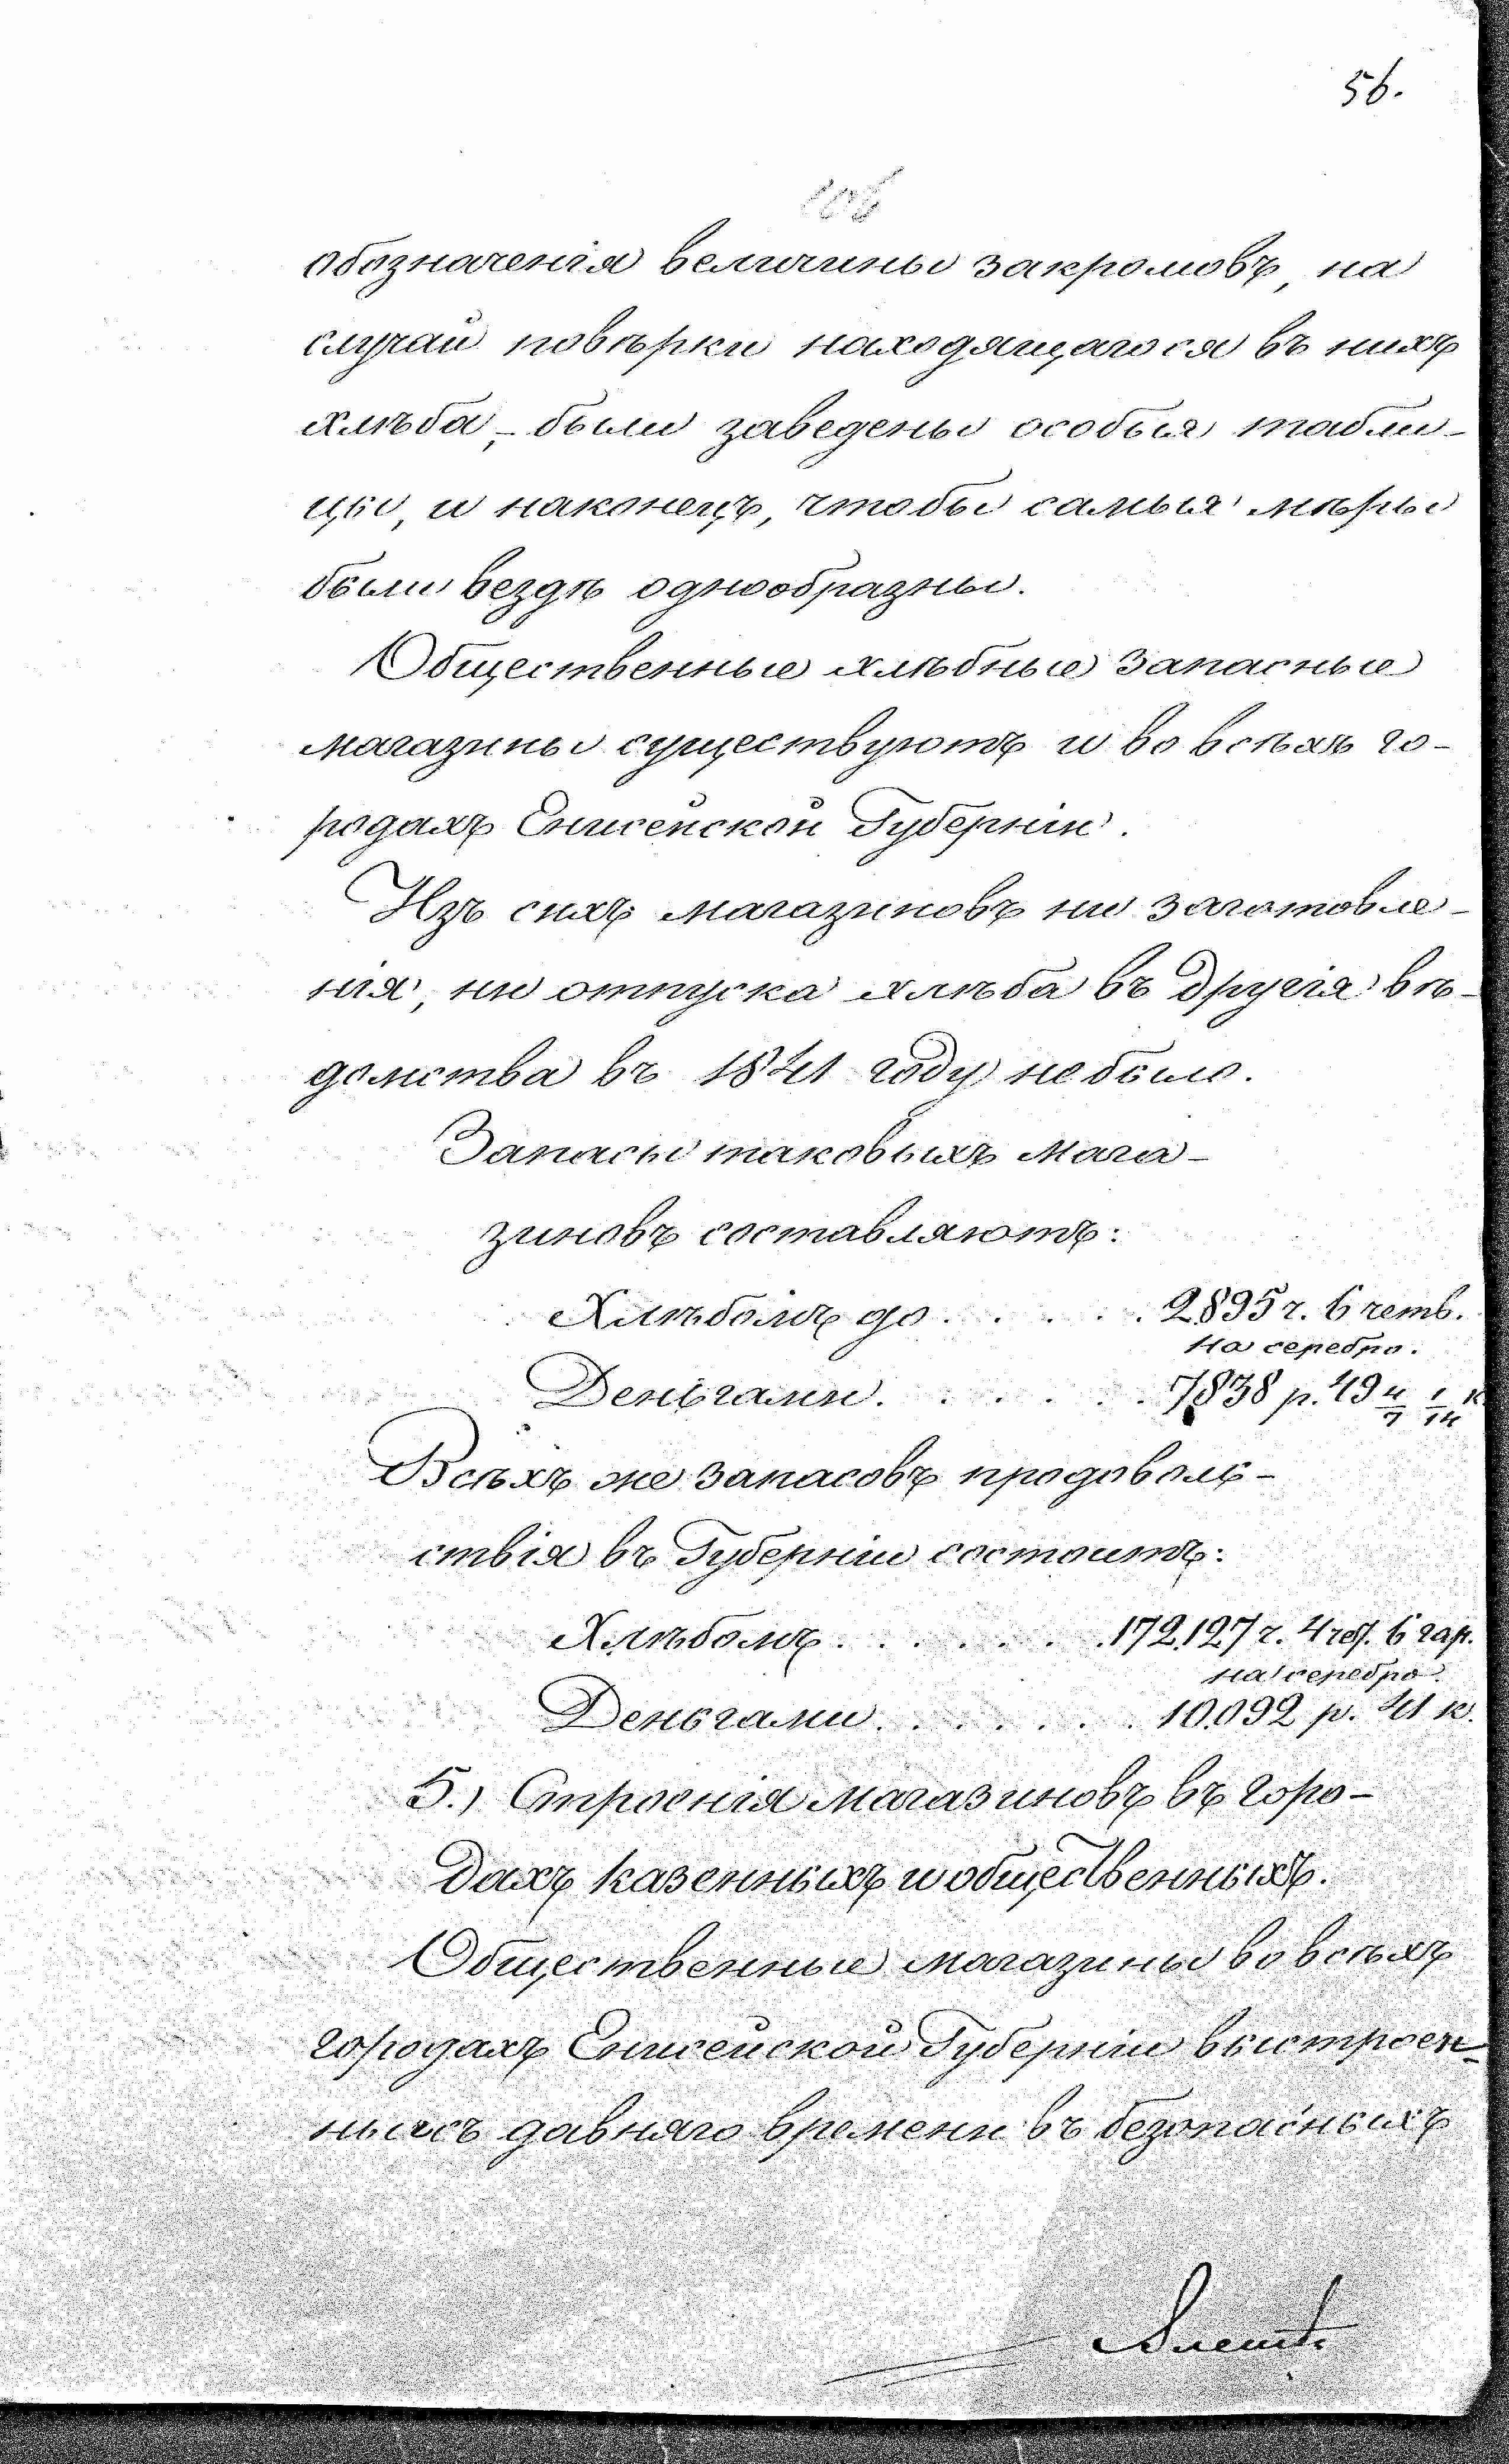 56.
обозначенія величины закромовъ, на
случай повѣрки находящагося въ нихъ
хлѣба, – были заведены особыя табли-
цы, и наконецъ, чтобы самыя мѣры
были вездѣ однообразны.
Общественные хлѣбные запасные
магазины существуютъ и во всѣхъ го-
родахъ Енисейской Губерніи.
Изъ сихъ магазиновъ ни заготовле-
нія, ни отпуска хлѣба въ другія вѣ-
домства въ 1841 году не было.
Запасы таковыхъ мага-
зиновъ составляютъ:
Хлѣбомъ до . . . . . 2895 ч. 6 четв.
на серебро.
Деньгами . . . . . . 7838 р. 49 4/7 1/14 к.
Всѣхъ же запасовъ продоволь-
ствія въ Губерніи состоитъ:
Хлѣбомъ . . . . . . . 172.127 ч. 4 чет. 6 гар.
на серебро.
Деньгами . . . . . . . 10.092 р. 41 к.
5.) Строенія магазиновъ въ горо-
дахъ казенныхъ и общественныхъ.
Общественные магазины во всѣхъ
городахъ Енисейской Губерніи выстроен-
ные съ давняго времени въ безопасныхъ